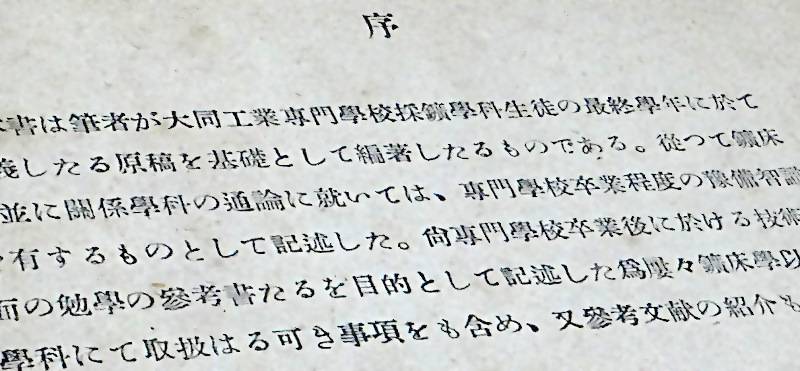 序
書は筆者が大同工業專門學校採鑛學科生徒の最終學年に於て
義したる原稿を基礎として編著したるものである。從つて鑛床
並に關係學科の通論に就いては、專門學校卒業程度の豫備智識
有するものとして記述した。尙專門學校卒業後に於ける技術
面の勉學の參考書たるを目的として記述した爲屢々鑛床學以
學科にて取扱はる可き事項をも含め、又參考文献の紹介も